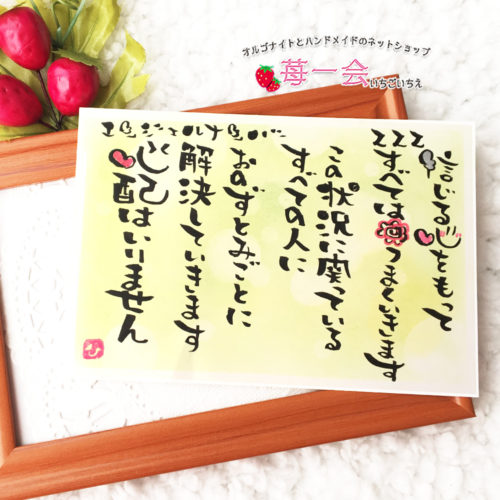 オルゴナイトとハンドメイドのネットショップ
苺一会 いちごいちえ
エンジェルナンバー 222
信じる心をもって
すべてはうまくいきます
この状況に関っている
すべての人に
おのずとみごとに
解決していきます
心配はいりません